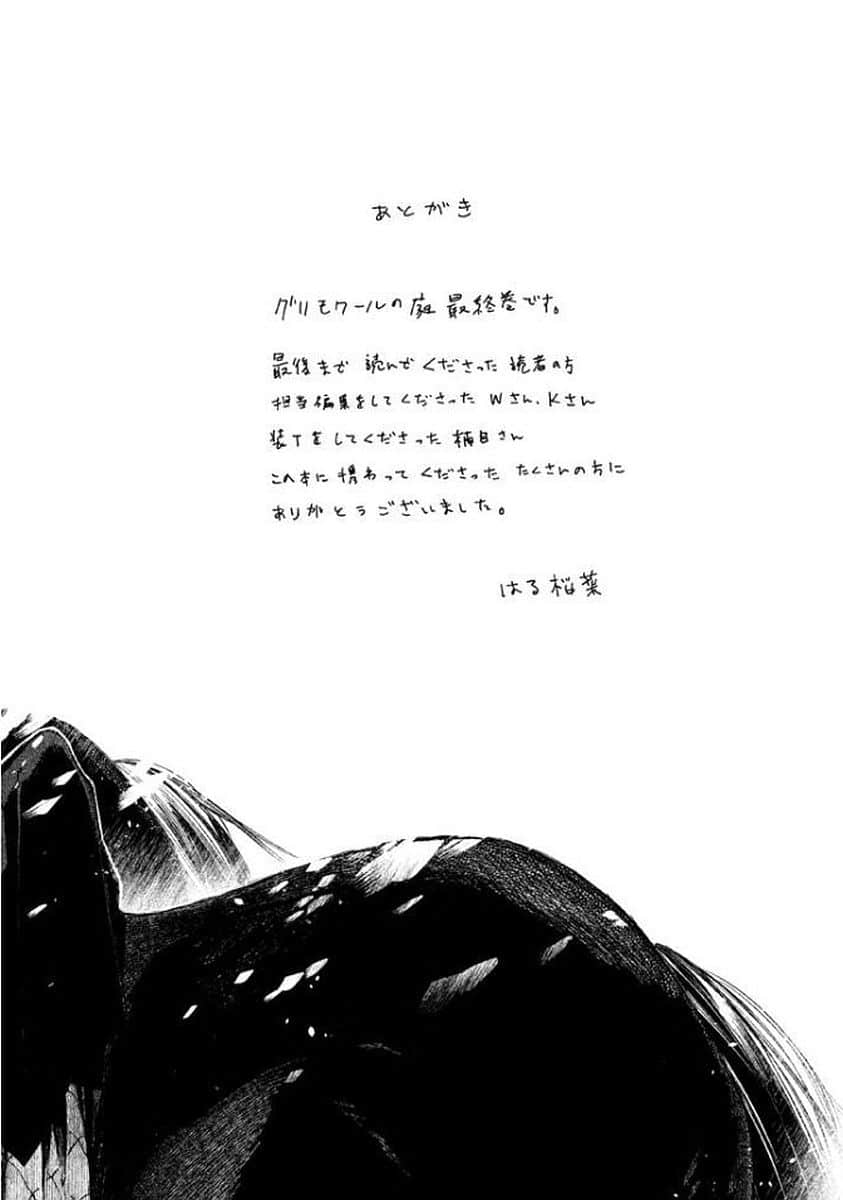 あとがき
グリモワールの庭 最終巻です。
最後まで 読んで くださった 読者の方
担当編集をしてくださった Wさん、Kさん
装丁をしてくださった 楠目さん
この本に携わって くださった たくさんの方に
ありがとうございました。
はる桜菜